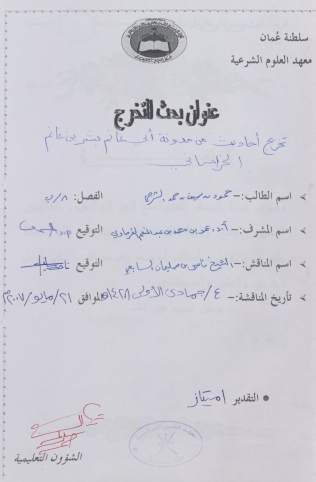 سلطنة عُمان
معهد العلوم الشرعية
عنوان بحث التخرج
تخريج أحاديث من مدونة أبي غانم بشر بن غانم
الخراساني
اسم الطالب:- حمود بن حمد الفصل: ٨/ب
اسم المشرف:- أ.د. عمر بن محمد بن عبد المنعم الفرماوي التوقيع
اسم المناقش:- الشيخ ناصر بن سليمان السابعي التوقيع
تأريخ المناقشة:- ٤/جمادى الأولى ١٤٢٨هـ الموافق ٢١/مايو/٢٠٠٧م
التقدير امتياز
الشؤون التعليمية